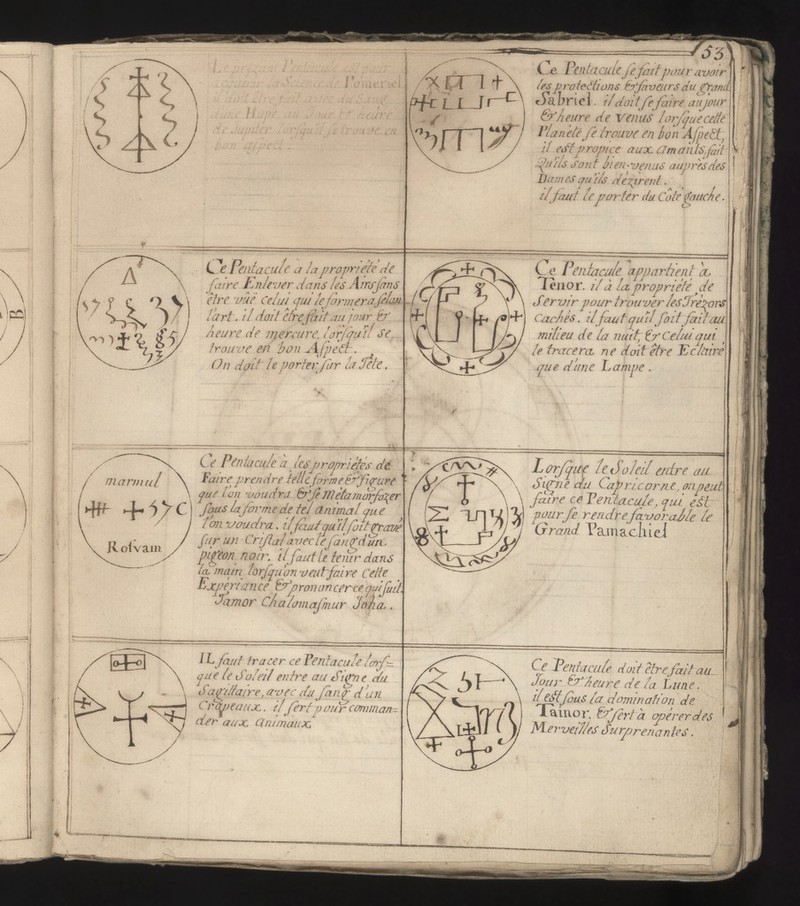 53
Le présent Pentacule est pour
acquérir la Science de Pomeriel
il doit être fait avec du Sang
d'une Hupe au Jour & heure
de Jupiter lorsqu'il se trouve en
bon aspect.
Ce Pentacule se fait pour avoir
les protections & faveurs du grand
Sabriel. il doit se faire au jour
& heure de Venus lorsque cette
Planéte se trouve en bon Aspect,
il est propice aux Amants, fait
Qu'ils sont bien-venus auprès des
Dames qu'ils dézirent.
il faut le porter du Côté gauche.
Ce Pentacule a la proprieté de
faire Enlever dans les Airs sans
être vüe celui qui le formera selon
l'art. il doit être fait au jour &
heure de mercure, lorsqu'il se
trouve en bon Aspect.
On doit le porter sur la Tête.
Ce Pentacule appartient à
Tenor. il à la proprieté de
Servir pour trouver les Trézors
Cachés. il faut qu'il soit fait au
milieu de la nuit, & Celui qui
le tracera ne doit être Eclairé
que d'une Lampe.
marmul
Rosvam
Ce Pentacule a les proprietés de
Faire prendre telle forme & figure
que l'on voudra & se Métamorfozer
sous la forme de tel animal que
l'on voudra. il faut qu'il soit gravé
sur un Cristal avec le sang d'un
pigeon noir. il faut le tenir dans
la main lorsqu'on veut faire Cette
Expériance & prononcer ce qui suit.
Tamor Chalomasmur Joha..
Lorsque le Soleil entre au
Signe du Capricorne, on peut
faire ce Pentacule, qui est
pour se rendre favorable le
Grand Pamachiel
IL faut tracer ce Pentacule lors=
que le Soleil entre au Signe du
Sagittaire, avec du sang d'un
Crapeaux. il sert pour comman=
der aux Animaux
Ce Pentacule doit être fait au
Jour & heure de la Lune.
il est sous la domination de
Tainor. & sert à opérer des
Merveilles Surprenantes.